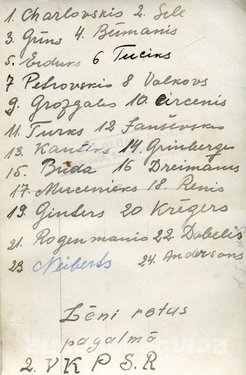 1. Charlovskis 2. Sile
3. Grūns 4. Būmanis
5. Erduks 6 Tuciks
7 Petrovskis 8 Valkovs
9. Grozgals 10. Circenis
11. Turks 12 Janševskis
13. Kanters 14. Grinbergs
15. Buda 16 Dreimanis
17. Mucenieks 18. Renis
19. Ginters 20 Krēgers
21. Rogenmanis 22. Dobelis
23 Neiberts 24. Andersons
Lēni rotas
pagalmā
2. V K P S. R